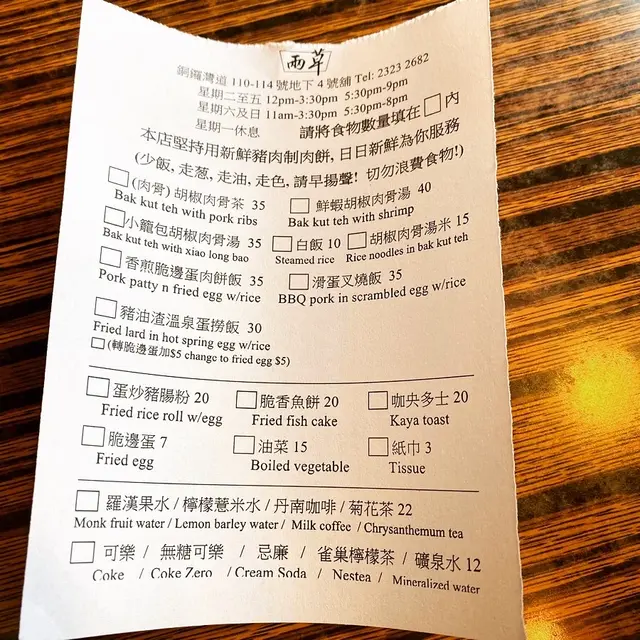 雨草
銅鑼灣道 110-114 號地下 4 號舖 Tel: 2323 2682
星期二至五 12pm-3:30pm 5:30pm-9pm
星期六及日 11am-3:30pm 5:30pm-8pm
星期一休息 請將食物數量填在 內
本店堅持用新鮮豬肉制肉餅, 日日新鮮為你服務
(少飯, 走葱, 走油, 走色, 請早揚聲! 切勿浪費食物!)
(肉骨) 胡椒肉骨茶 35 鮮蝦胡椒肉骨湯 40
Bak kut teh with pork ribs Bak kut teh with shrimp
小籠包胡椒肉骨湯 35 白飯 10 胡椒肉骨湯米 15
Bak kut teh with xiao long bao Steamed rice Rice noodles in bak kut teh
香煎脆邊蛋肉餅飯 35 滑蛋叉燒飯 35
Pork patty n fried egg w/rice BBQ pork in scrambled egg w/rice
豬油渣溫泉蛋撈飯 30
Fried lard in hot spring egg w/rice
(轉脆邊蛋加$5 change to fried egg $5)
蛋炒豬腸粉 20 脆香魚餅 20 咖央多士 20
Fried rice roll w/egg Fried fish cake Kaya toast
脆邊蛋 7 油菜 15 紙巾 3
Fried egg Boiled vegetable Tissue
羅漢果水 / 檸檬薏米水 / 丹南咖啡 / 菊花茶 22
Monk fruit water / Lemon barley water / Milk coffee / Chrysanthemum tea
可樂 / 無糖可樂 / 忌廉 / 雀巢檸檬茶 / 礦泉水 12
Coke / Coke Zero / Cream Soda / Nestea / Mineralized water